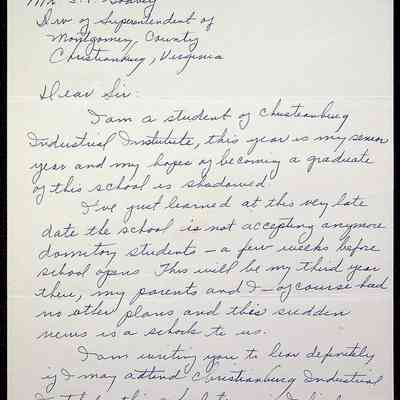 Div of Superintendent of
Montgomery, County
Christianburg, Virginia
Dear Sir:
I am a student of Christianburg
Industrial Institute, this year is my senior
year and my hopes of becoming a graduate
of this school is shadowed.
I've just learned at this very late
date the school is not accepting anymore
domitory students – a few weeks before
school opens. This will be my third year
there, my parents and I – of course had
no other plans and this sudden
news is a schock to us.
I am writing you to learn
if I may attend Christianburg Industrial